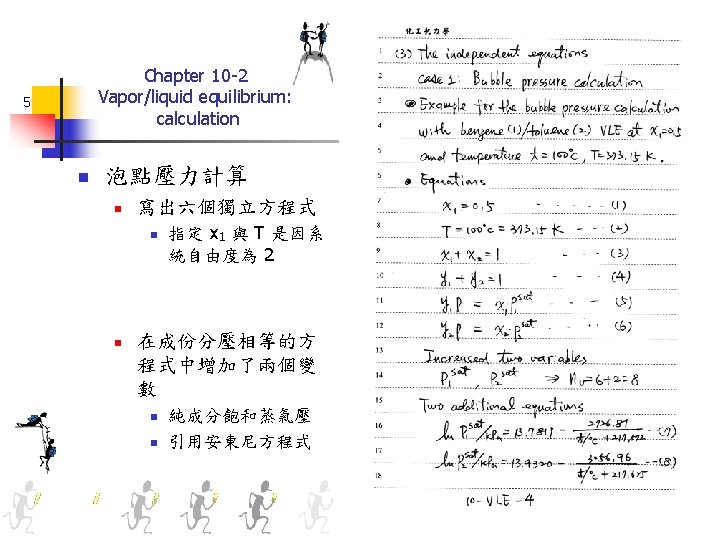 Chapter 10-2
Vapor/liquid equilibrium:
calculation
5
泡點壓力計算
寫出六個獨立方程式
指定 x1 與 T 是因系
統自由度為 2
在成份分壓相等的方
程式中增加了兩個變
數
純成分飽和蒸氣壓
引用安東尼方程式
化工熱力學
1 (3) The independent equations
2 case 1: Bubble pressure calculation
3 Example for the bubble pressure calculation
4 with benzene(1)/toluene(2) VLE at x1=0.5
5 and temperature t=100°C, T=373.15 K.
6 Equations
7 x1=0.5 ----- (1)
8 T=100°C=373.15 K --- (2)
9 x1+x2=1 --- (3)
10 y1+y2=1 --- (4)
11 y1P = x1P1sat --- (5)
12 y2P = x2P2sat --- (6)
13 Increased two variables
14 P1sat, P2sat ⇒ Nv=6+2=8
15 Two additional equations
16 ln P1sat/kPa = 13.7819 - 2726.81/(t/°C + 217.572) --(7)
17 ln P2sat/kPa = 13.9320 - 3056.96/(t/°C + 217.625) --(8)
18
10-VLE-4